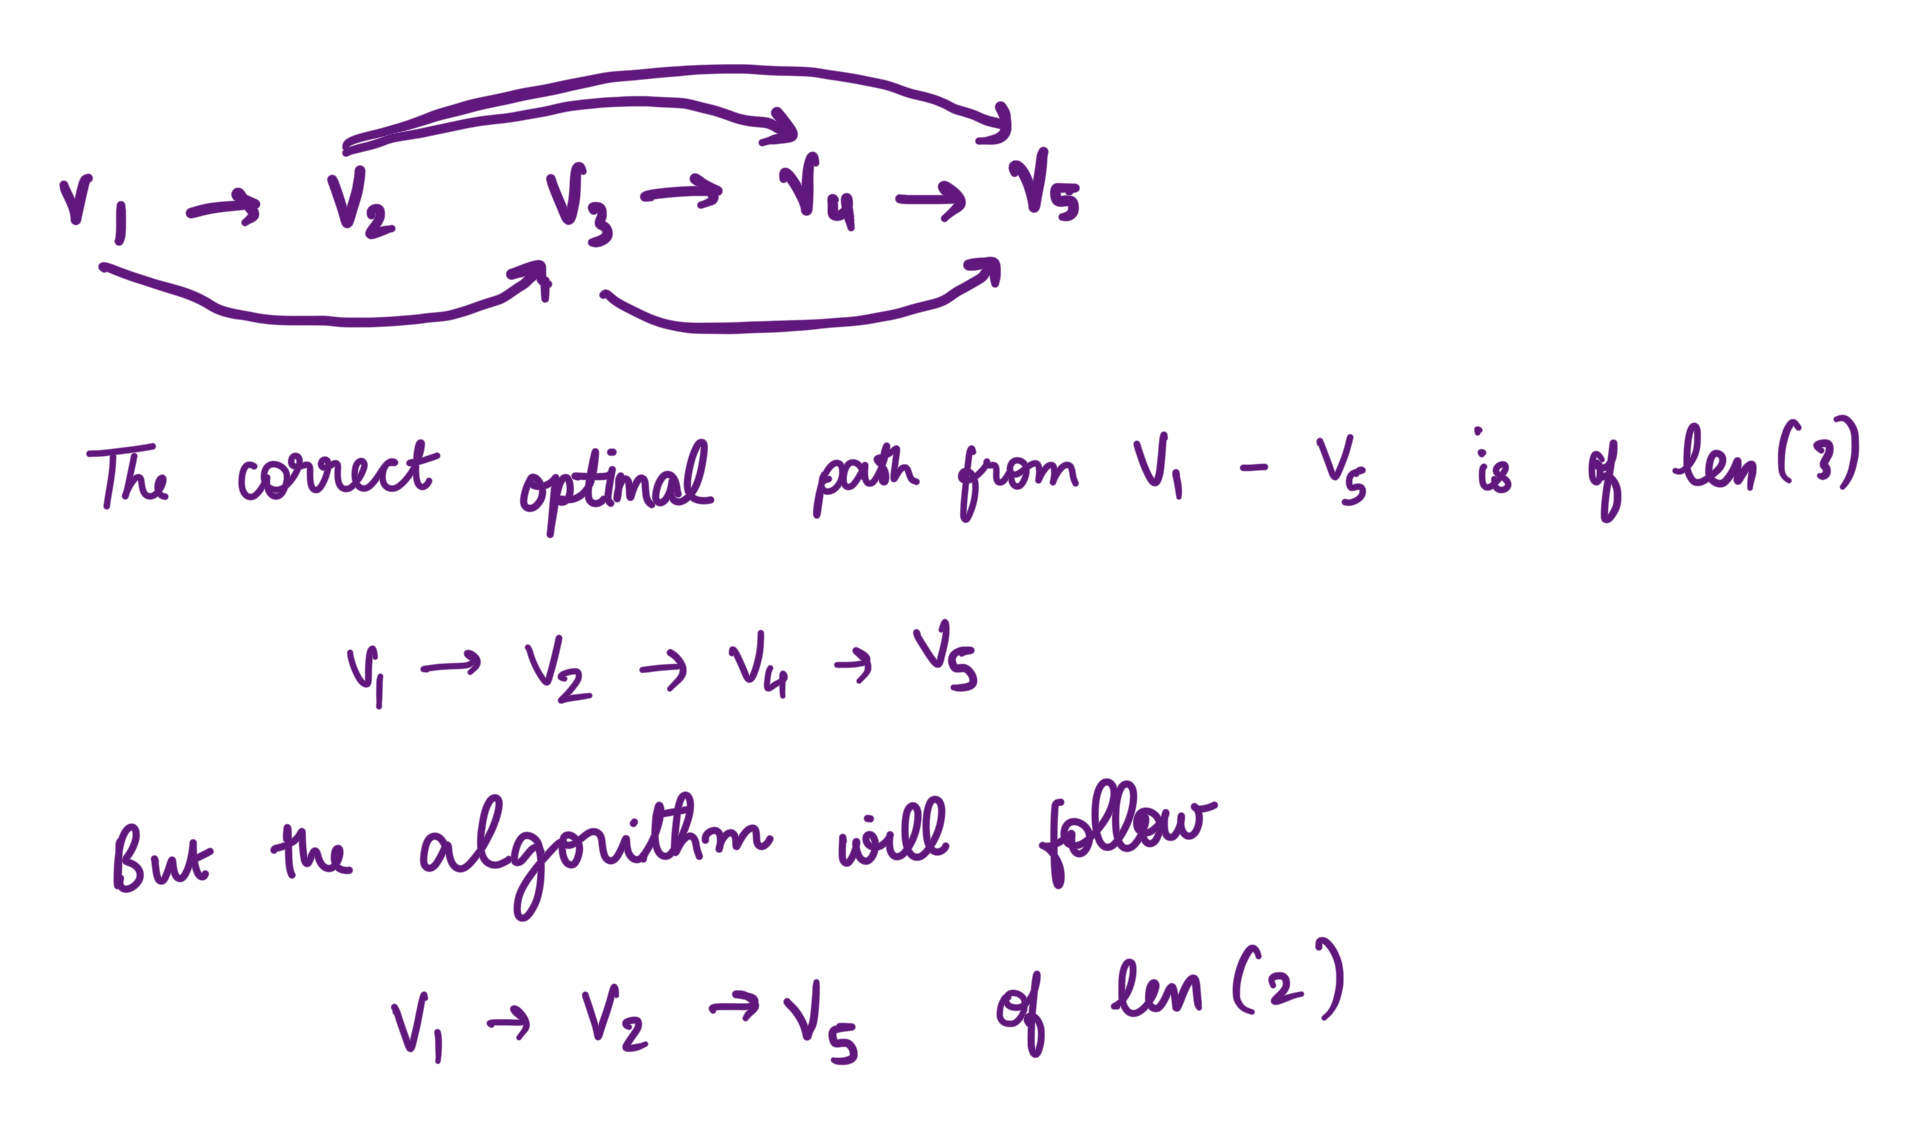 V1 → V2 V3 → V4 → V5
The correct optimal path from V1 - V5 is of len(3)
V1 → V2 → V4 → V5
But the algorithm will follow
V1 → V2 → V5 of len(2)